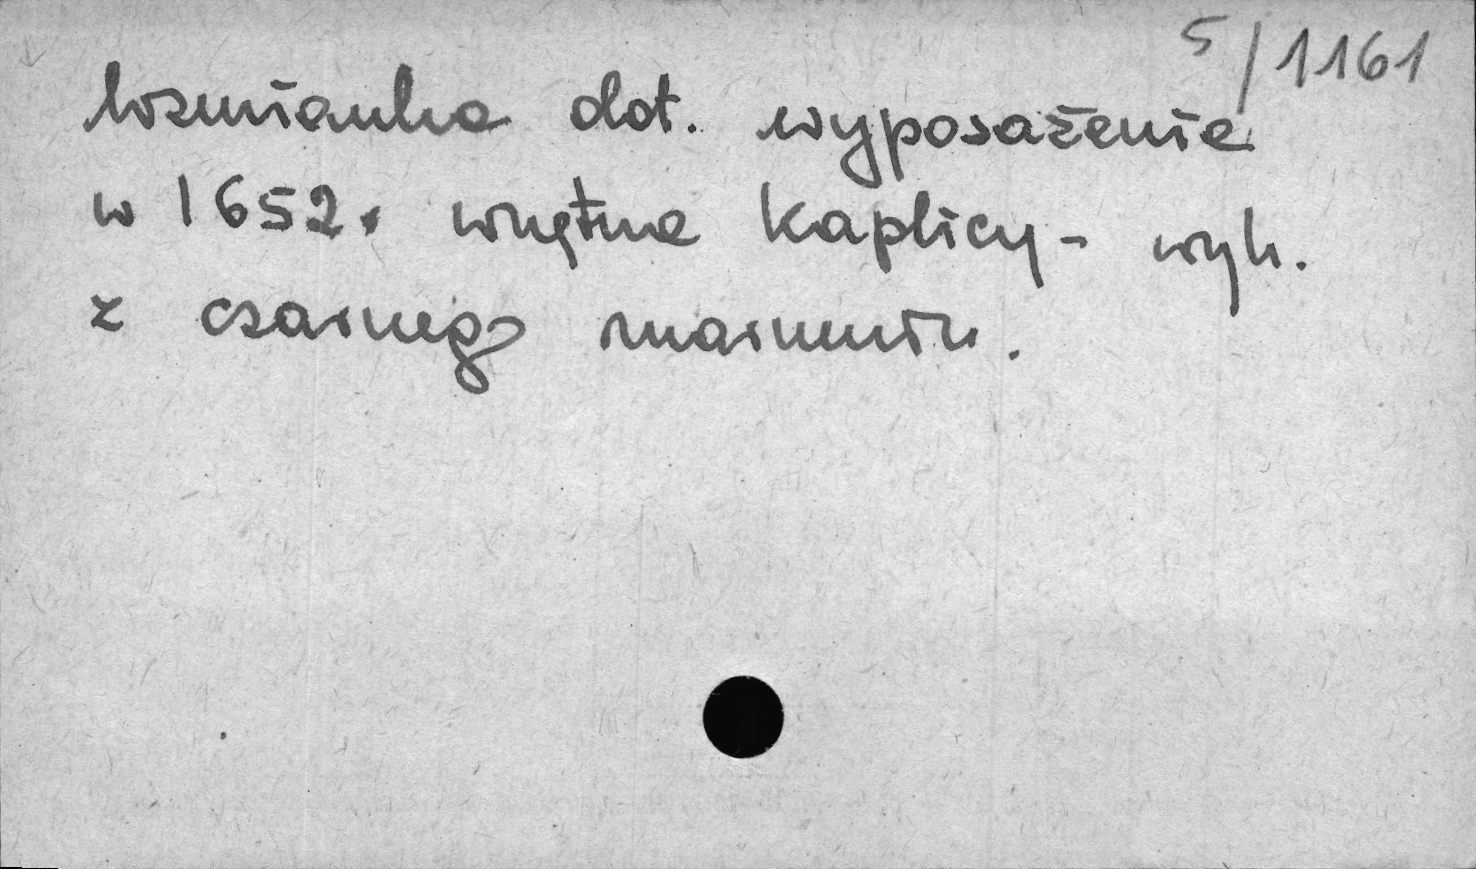 5/1161
Wzmianka dot. wyposażenie
w 1652. wnętrze kaplicy - wyk.
z czarnego marmuru.